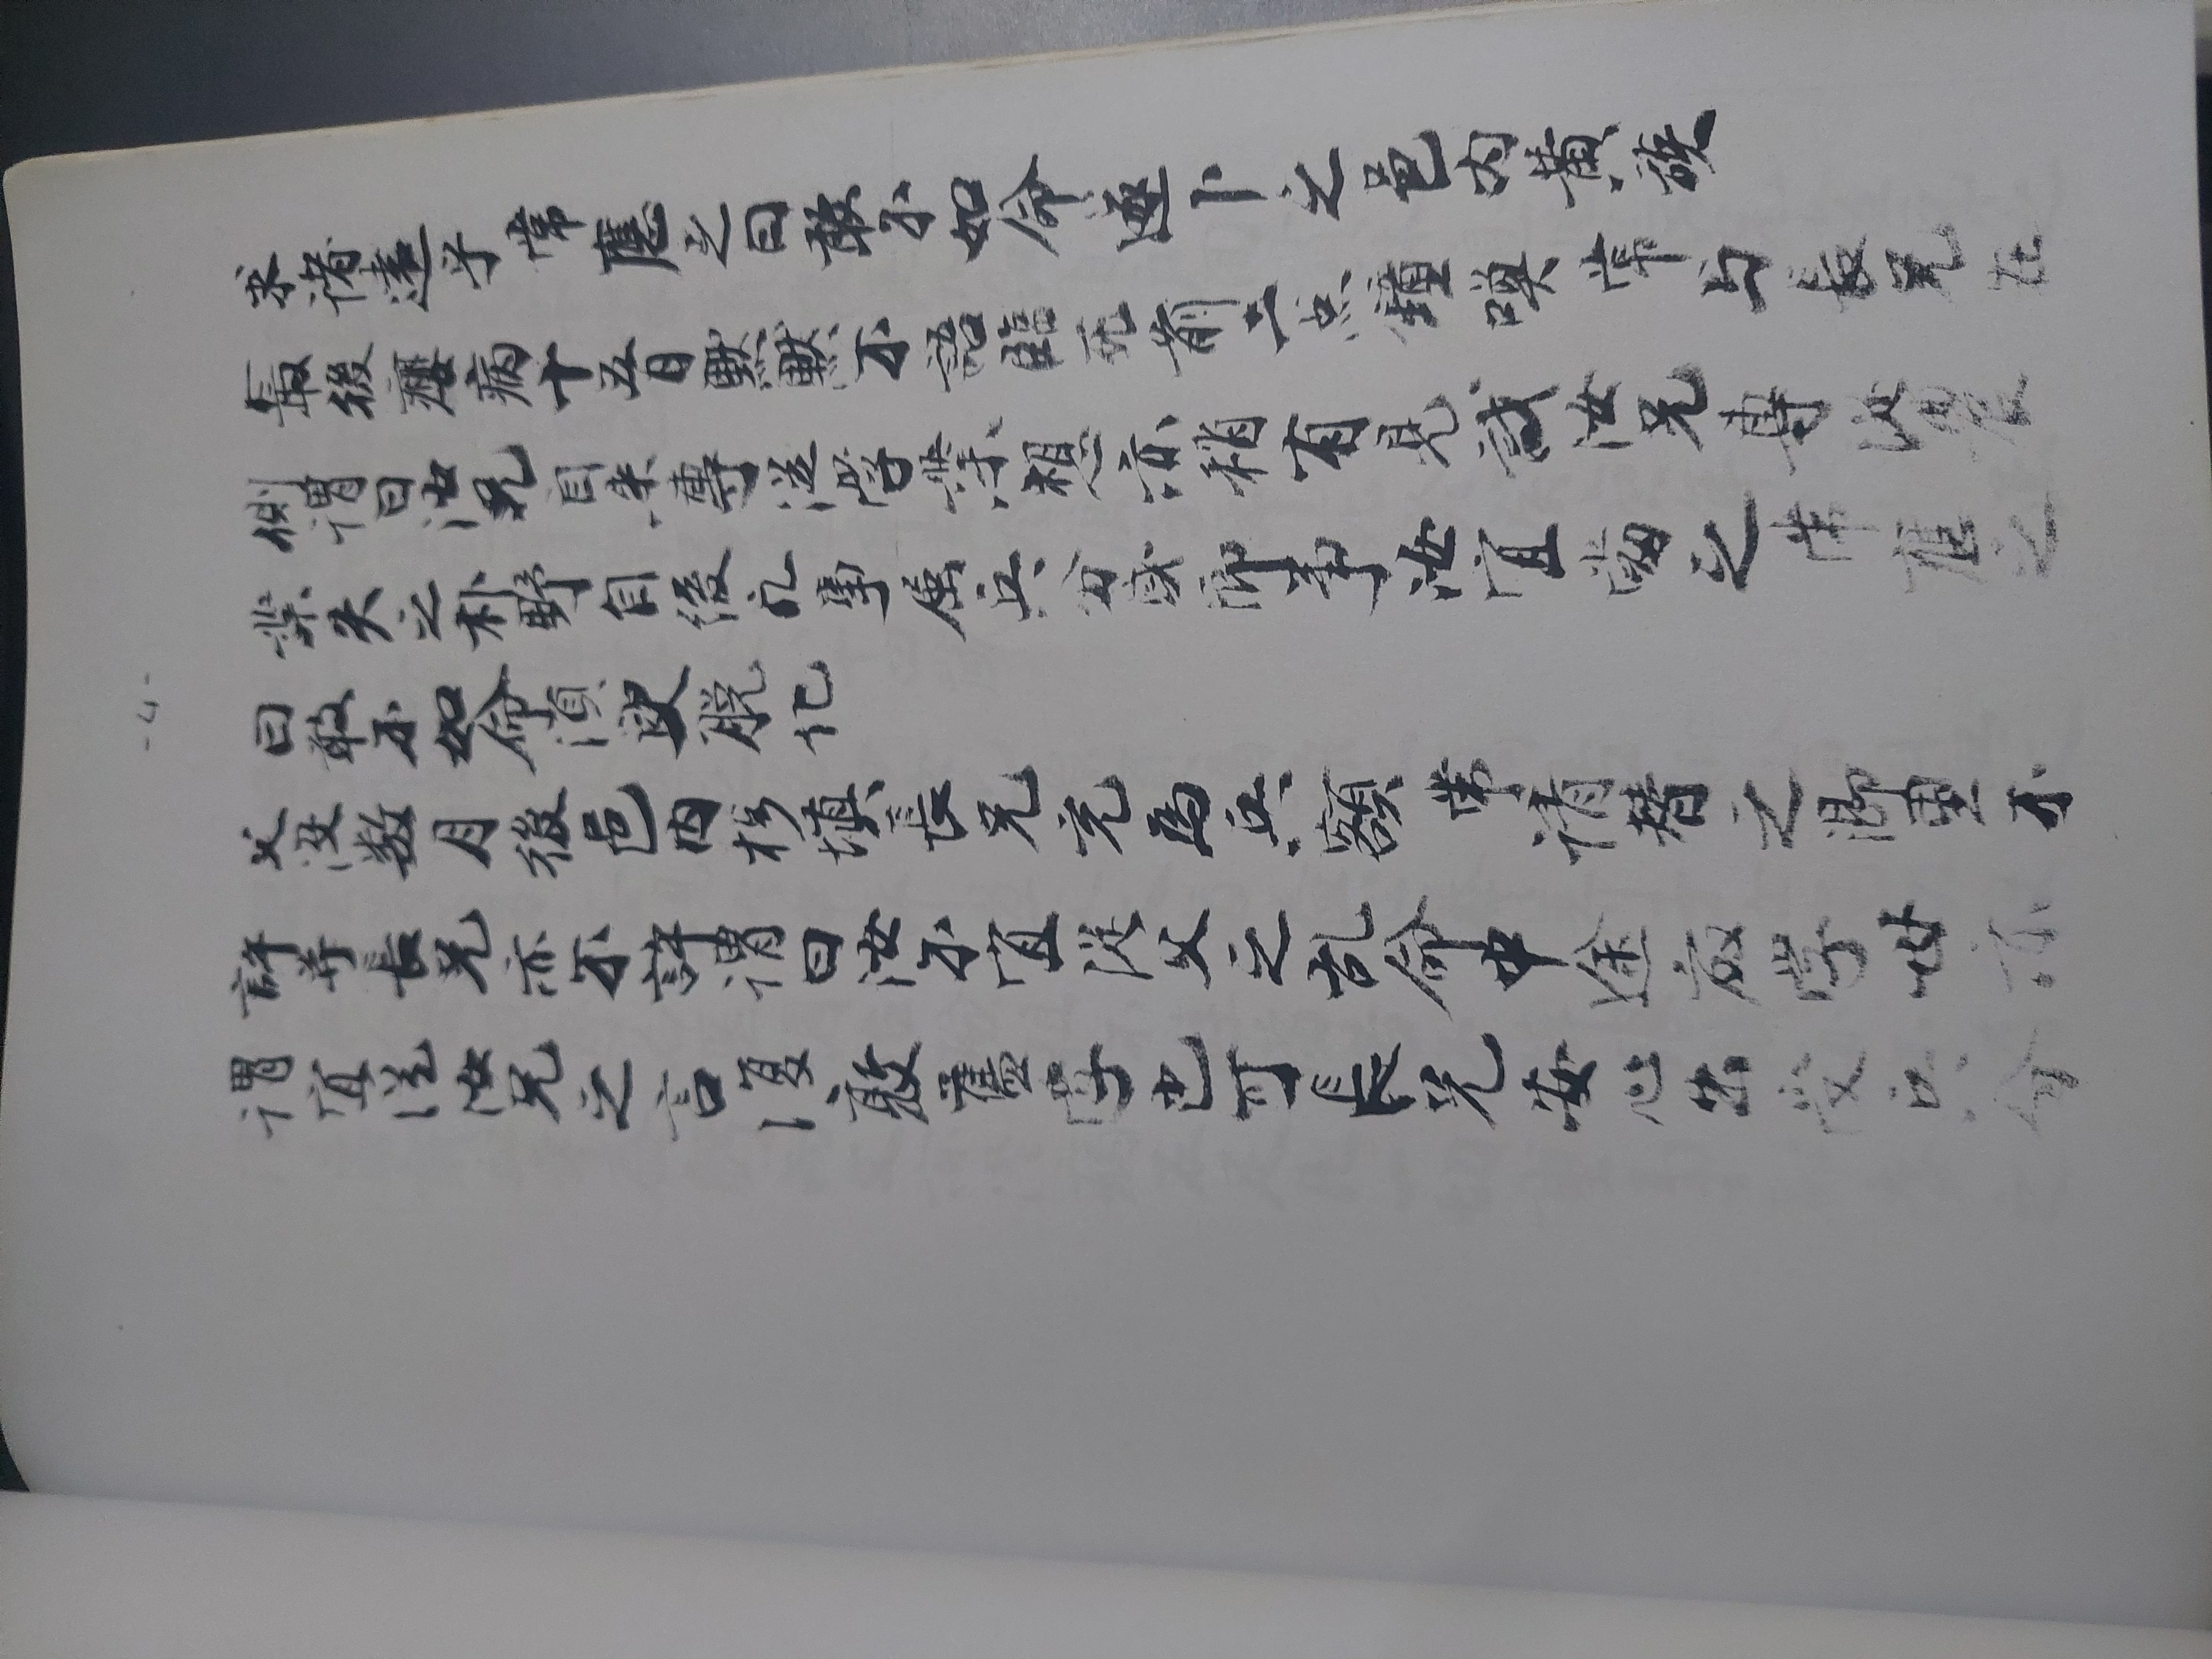 -4-
求諸遠乎常應之曰敢不如命遂卜之邑内黄族
最後癭病十五日默默不語臨死前二点鐘喚常与長兄在
側謂曰汝兄自来專從学業想亦稍有見識汝兄專從農
業失之朴野自後凡事屬兵分或鄉事汝宜當之常應之
曰敢不如命湏臾脱化
父没数月後邑内移填長兄充爲兵額常請替之鄉里不
許并長兄亦不許謂曰汝不宜從父之乱命中途廢学世亦
謂宜從汝兄之言復敦舊学也可長兄安心出受兵分